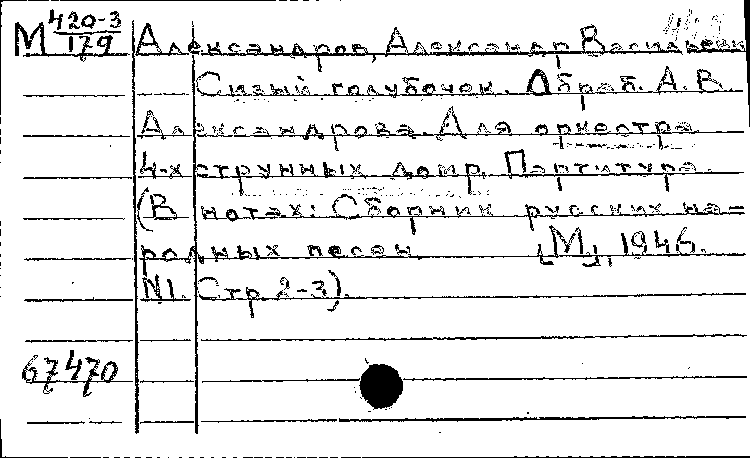 М 420-3/179 Александров, Александр Васильевич
Сизый голубочек. Обраб. А. В.
Александрова. Для оркестра
4-х струнных домр. Партитура.
(В нотах: Сборник русских на=
родных песен. [М], 1946.
N1. Стр. 2-3).
67470